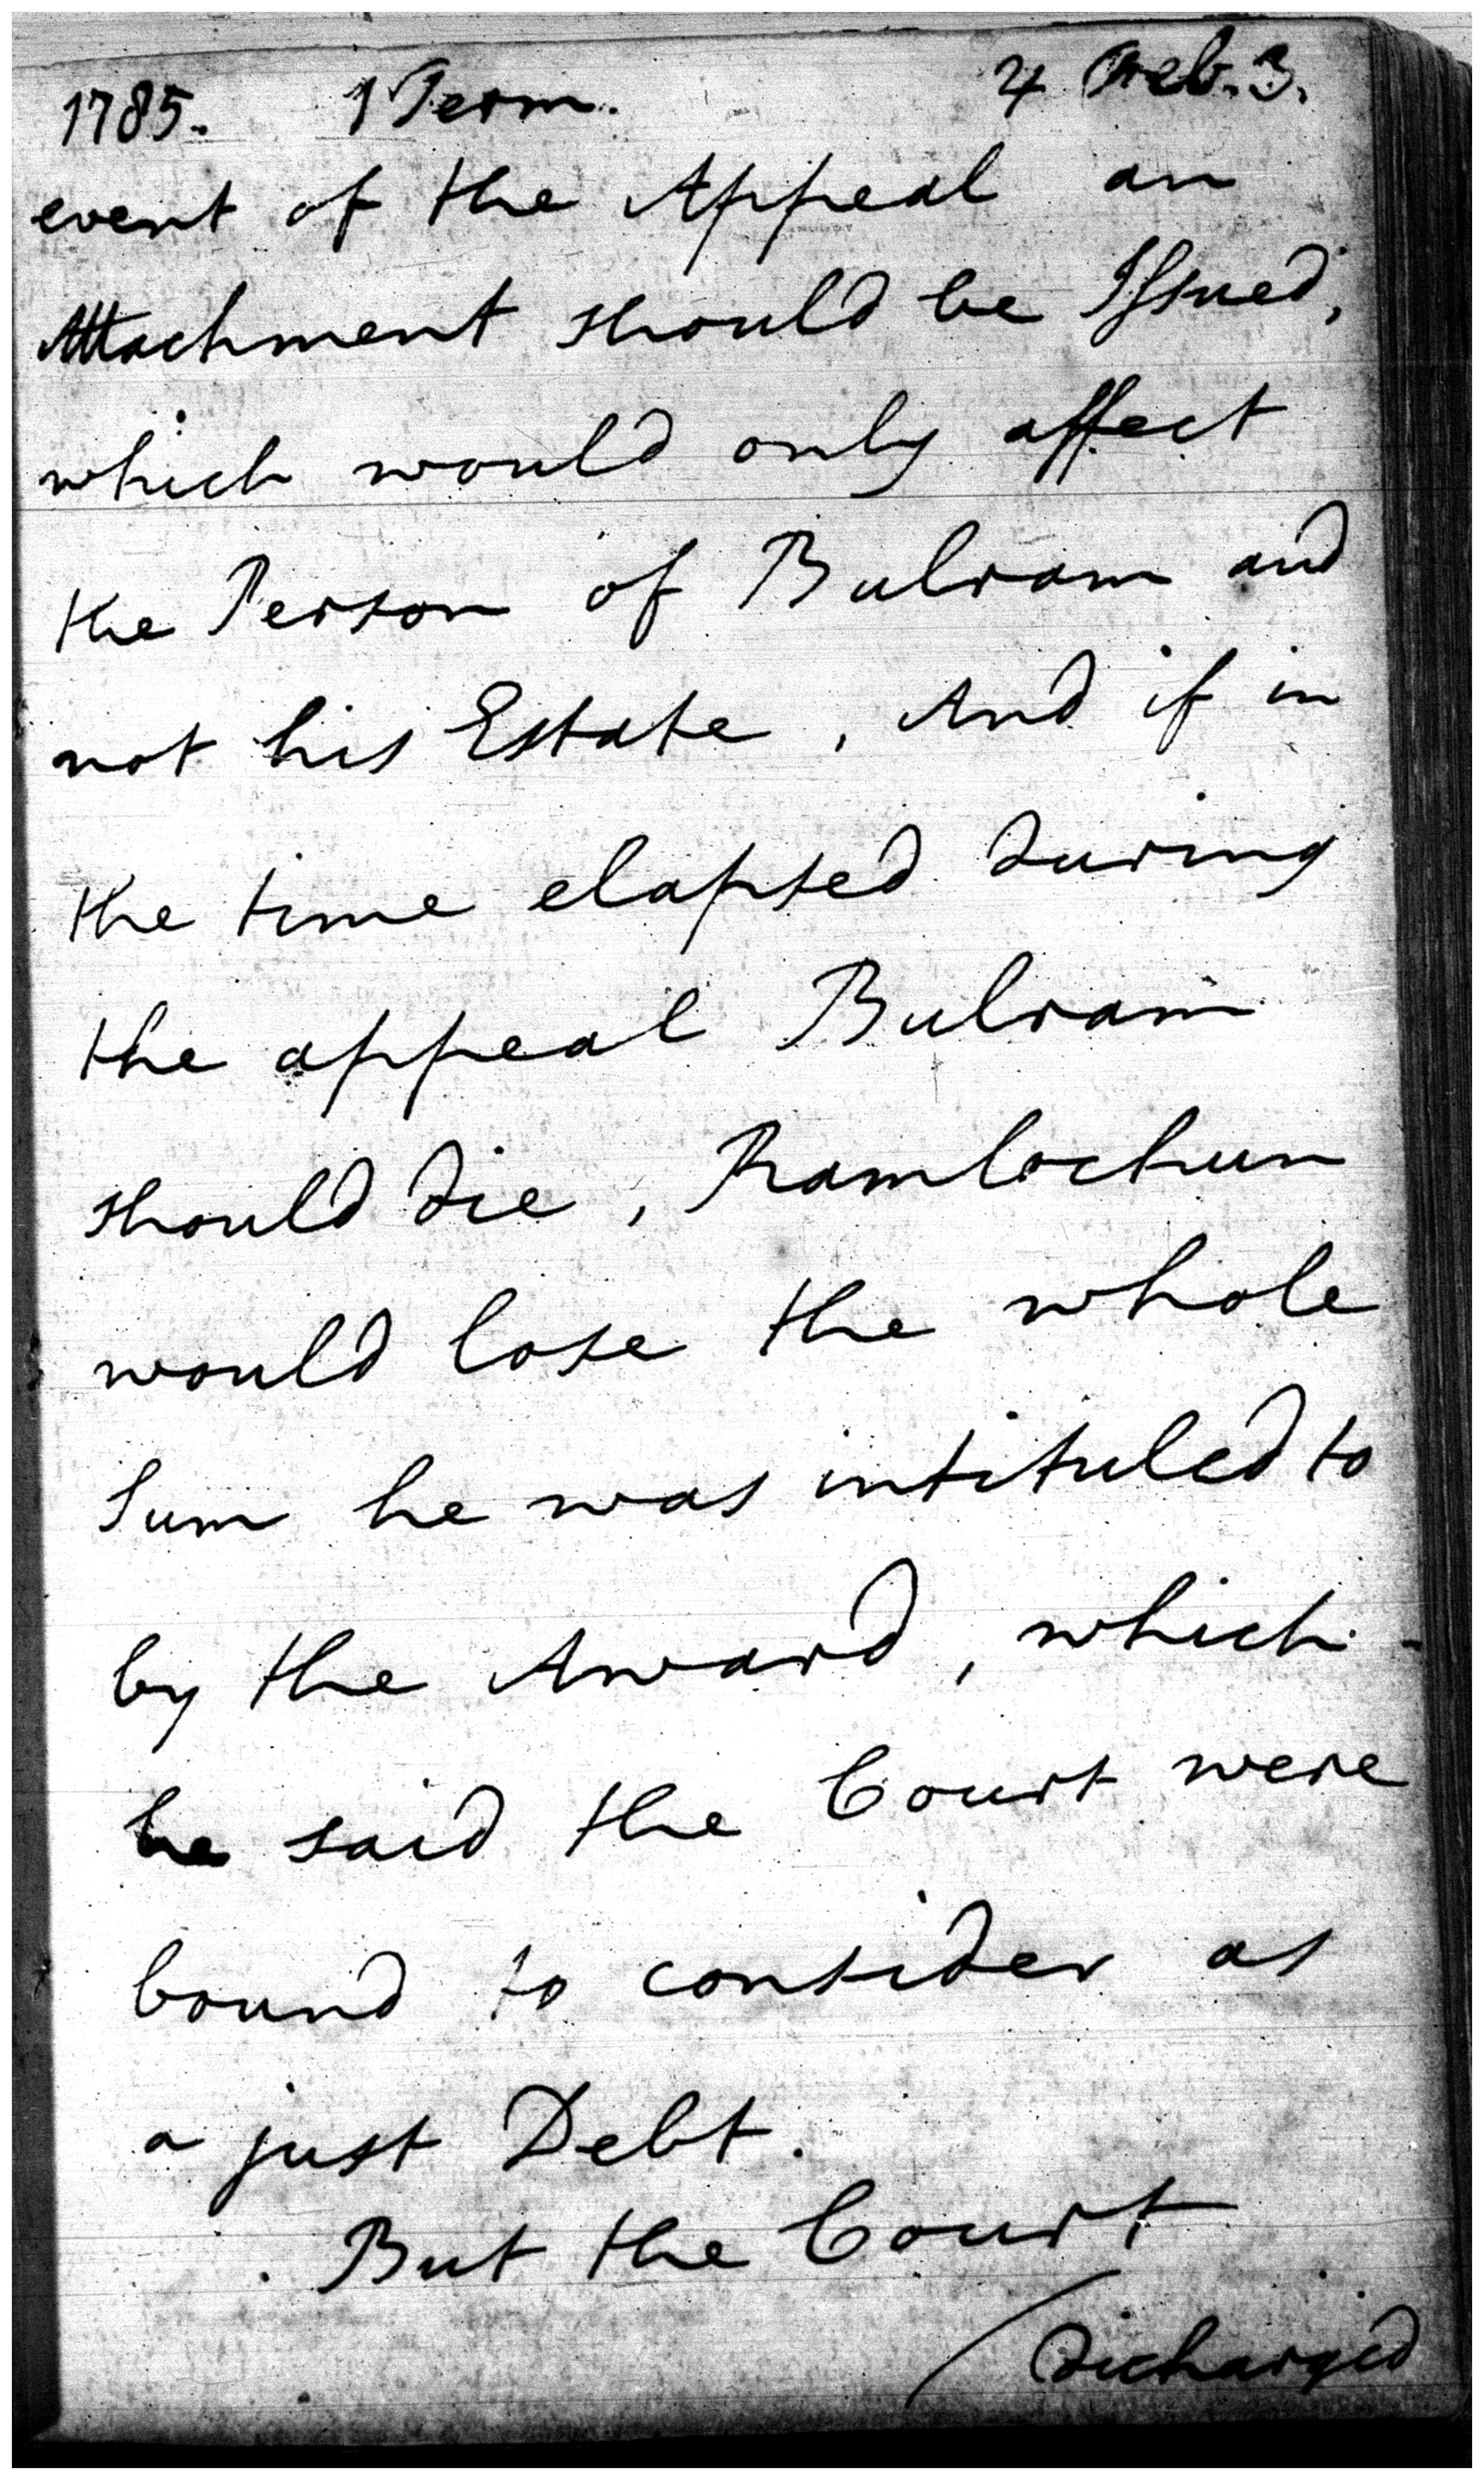 1785. 1 Term. 4 Feb. 3.
event of the Appeal an
Attachment should be Issued,
which would only affect
the Person of Bulram and
not his Estate, And if in
the time elapsed during
the appeal Bulram
should die, Ramlochun
would lose the whole
Sum he was intituled to
by the Award, which
he said the Court were
bound to consider as
a just Debt.
But the Court
/Dicharged